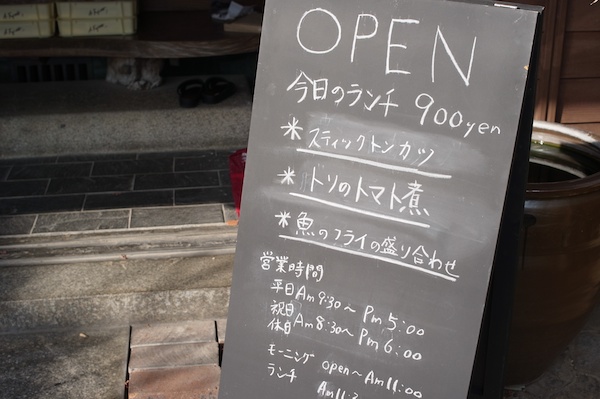 OPEN
今日のランチ 900yen
* スティックトンカツ
* トリのトマト煮
* 魚のフライの盛り合わせ
営業時間
平日 Am 9:30～ Pm 5:00
祝日
休日 Am 8:30～ Pm 6:00
モーニング open～Am 11:00
ランチ Am 11: